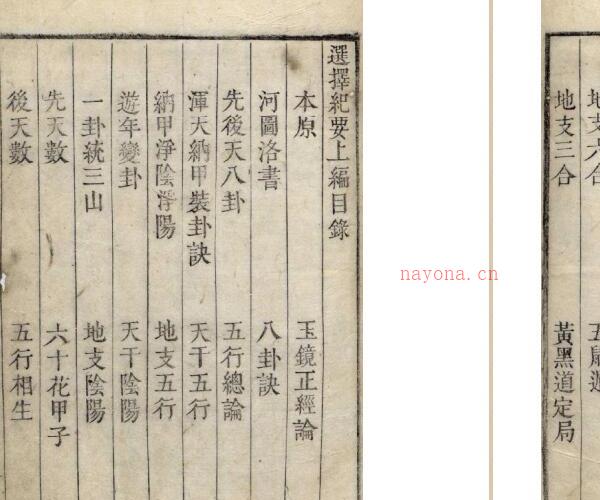 選擇紀要上編目錄
本原 玉鏡正經論
河圖洛書 八卦訣
先後天八卦 五行總論
渾天納甲裝卦訣 天干五行
納甲淨陰淨陽 地支五行
遊年變卦 天干陰陽
一卦統三山 地支陰陽
先天數 六十花甲子
後天數 五行相生
nayona.cn
地支六合
地支三合 黃黑道定局